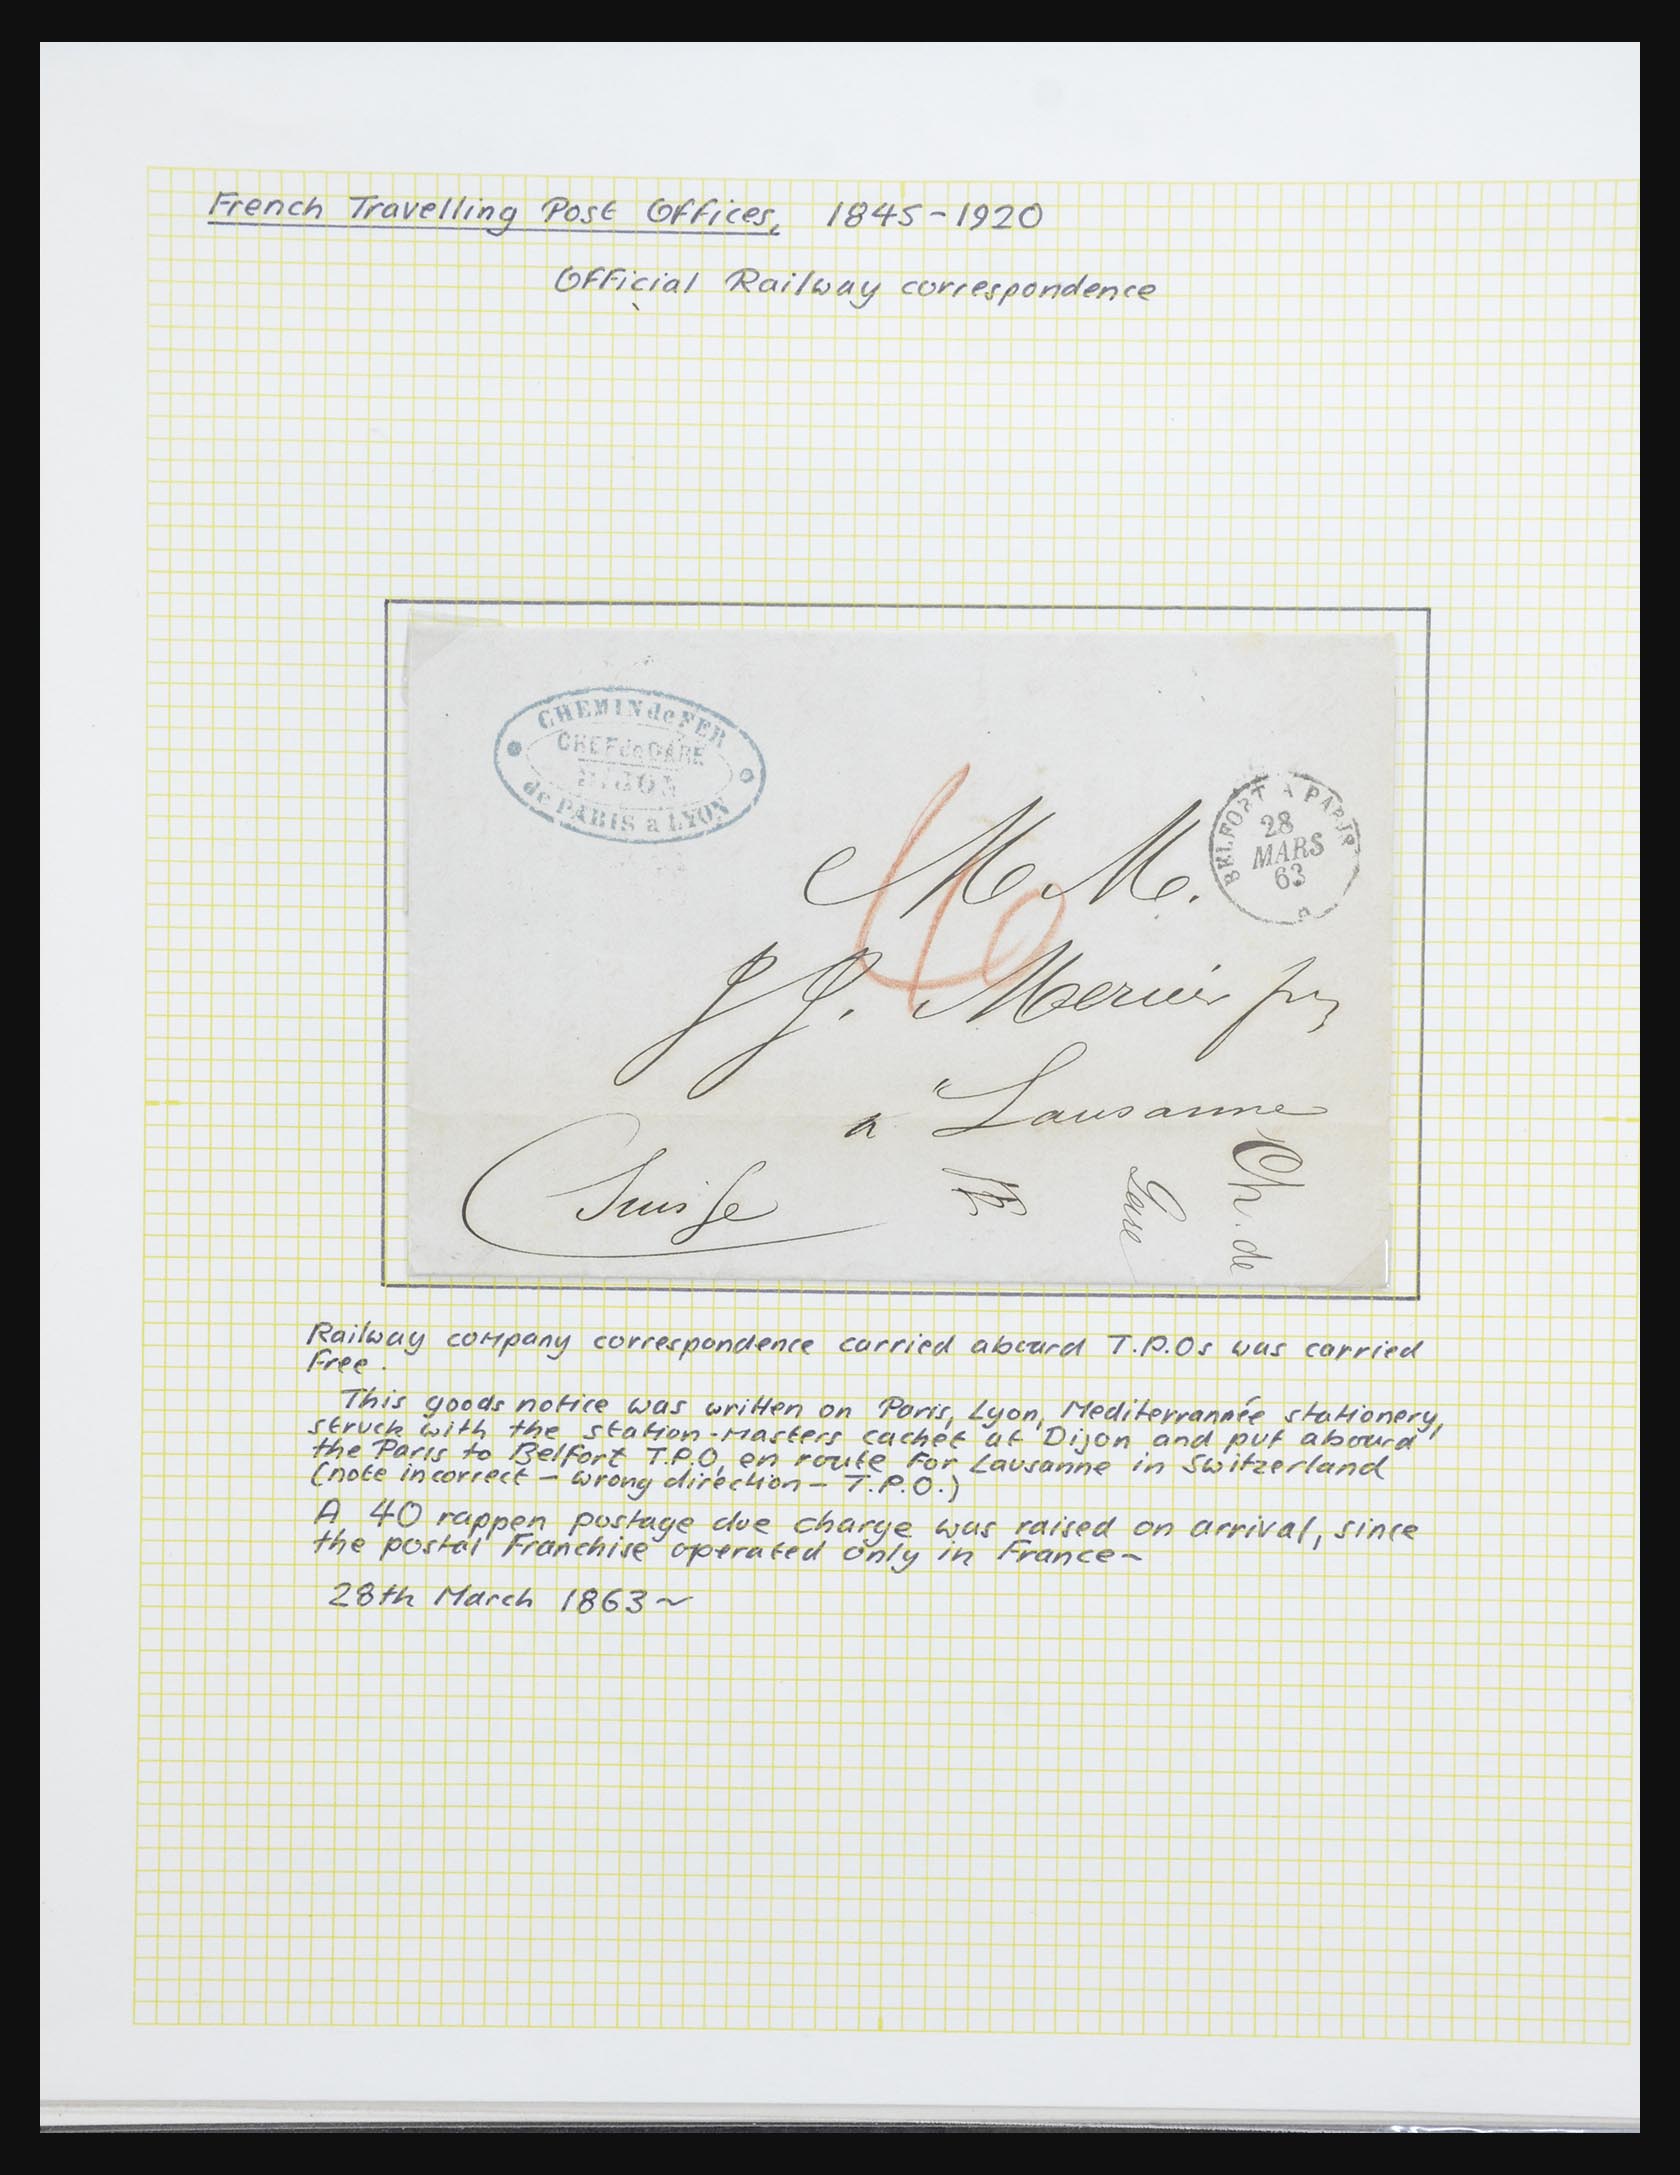 French Travelling Post Offices, 1845-1920
Official Railway correspondence
CHEMIN de FER
CHEF de GARE
DIJON
de PARIS a LYON
BELFORT A PARIS
28
MARS
63
40
M M.
J J. Mercier
a Lausanne
Suisse
Gare
Ch. de
Railway company correspondence carried aboard T.P.Os was carried
free.
This goods notice was written on Paris, Lyon, Mediterrannée stationery,
struck with the station-masters cachet at Dijon and put aboard
the Paris to Belfort T.P.O, en route for Lausanne in Switzerland
(note incorrect - wrong direction - T.P.O.)
A 40 rappen postage due charge was raised on arrival, since
the postal franchise operated only in France-
28th March 1863~